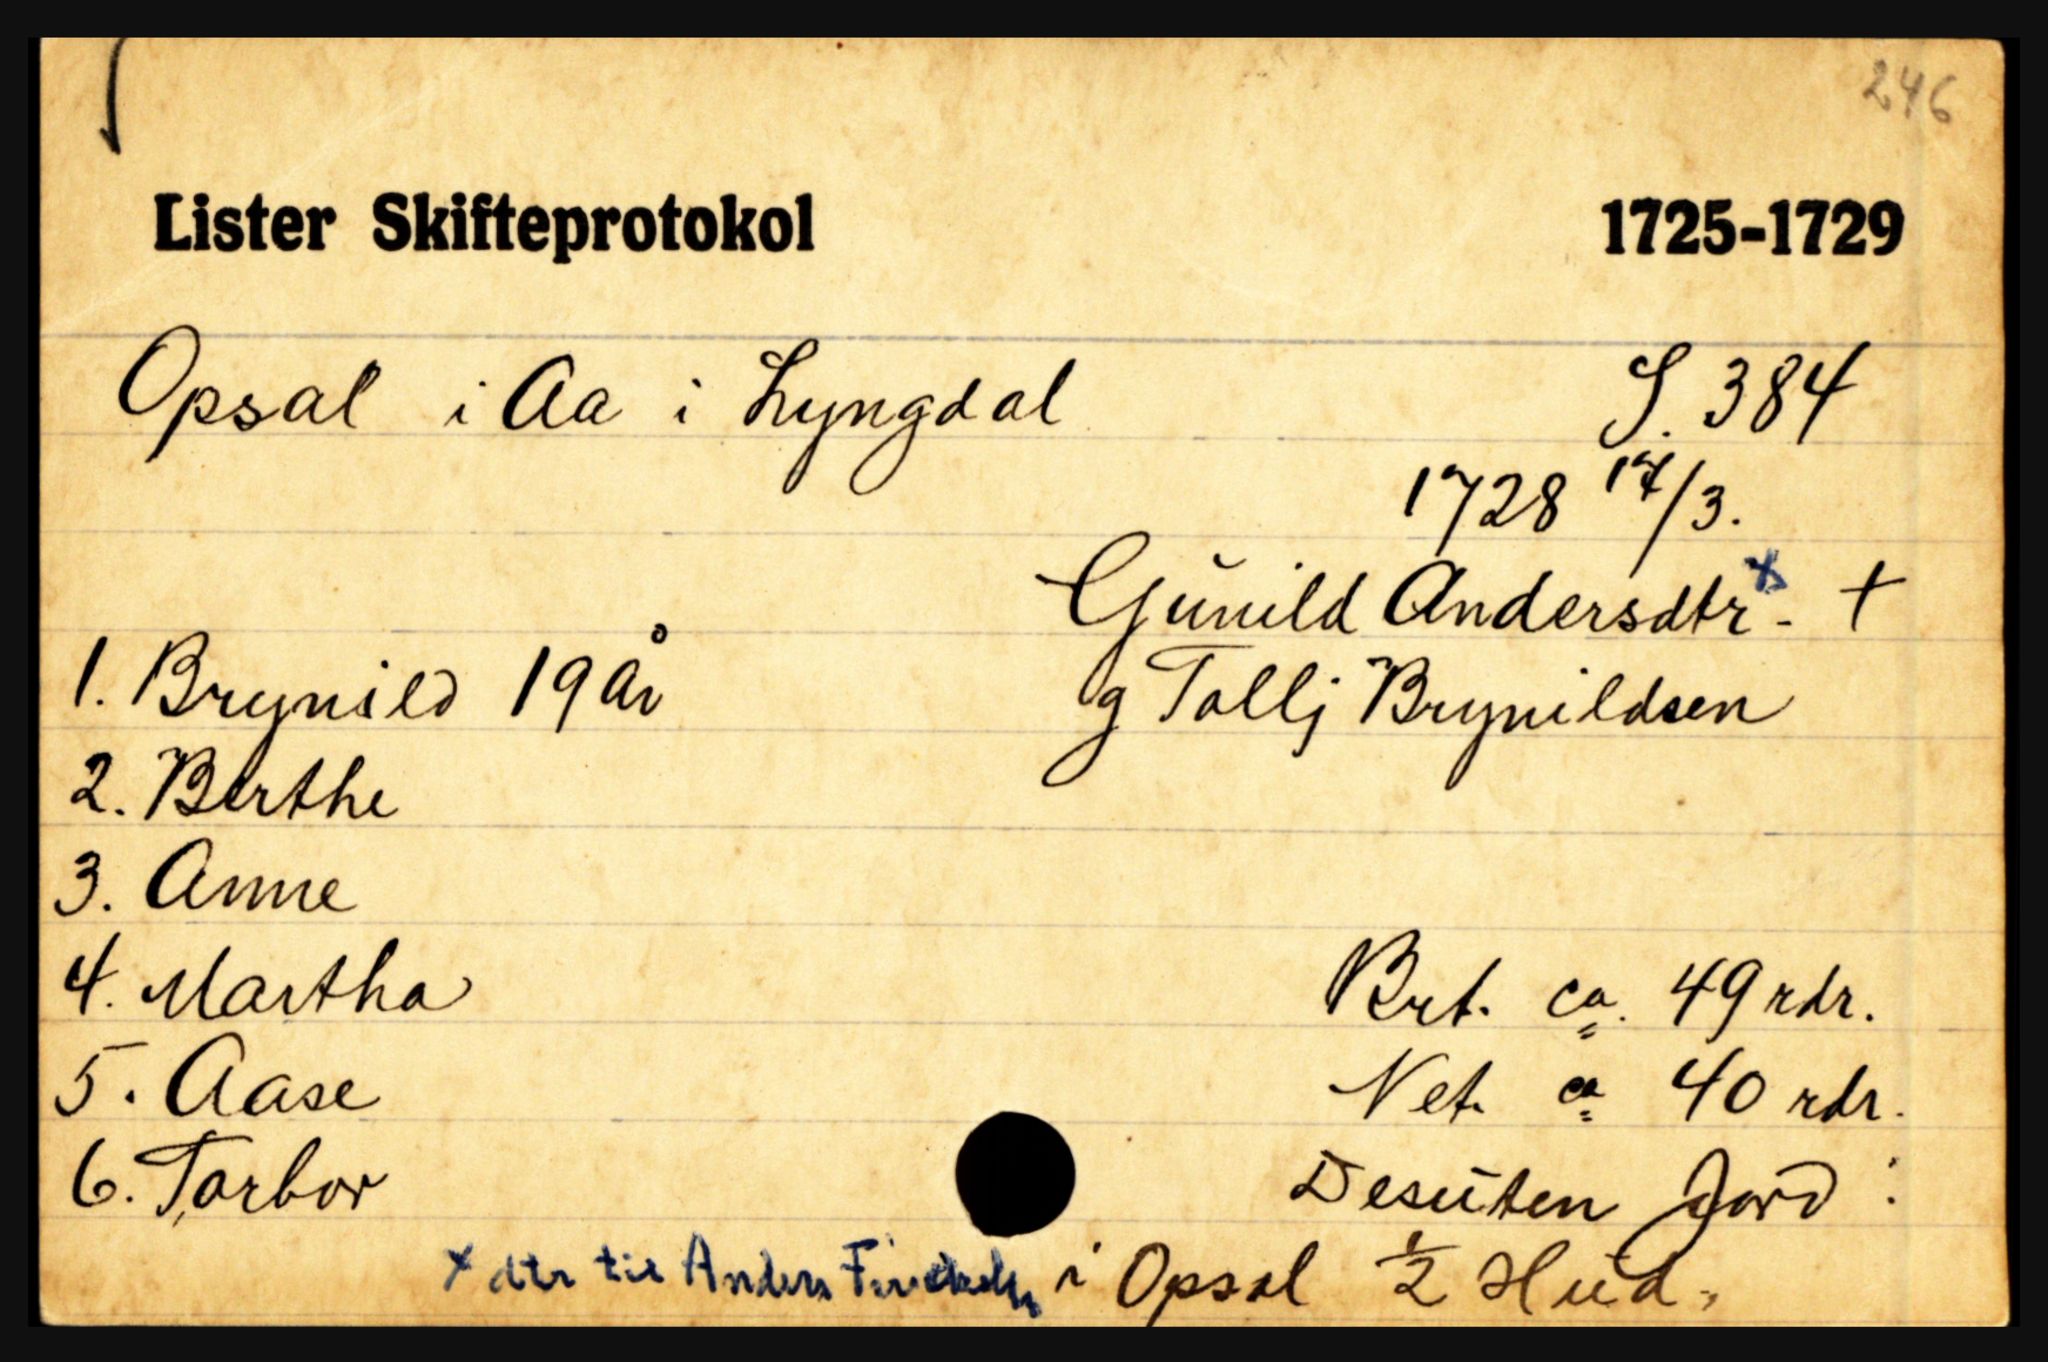 246
Lister Skifteprotokol 1725-1729
Opsal i Aa i Lyngdal S. 384
1728 17/3.
Gŭnild Andersdtr x - †
1. Brynild 19 År g Tollj Brynildsen
2. Berthe
3. Anne
4. Martha Brt. ca. 49 rdr.
5. Aase Net. ca 40 rdr.
6. Torbor Desŭten Jord :
x dtr til Anders i Opsal 1/2 Hŭd.